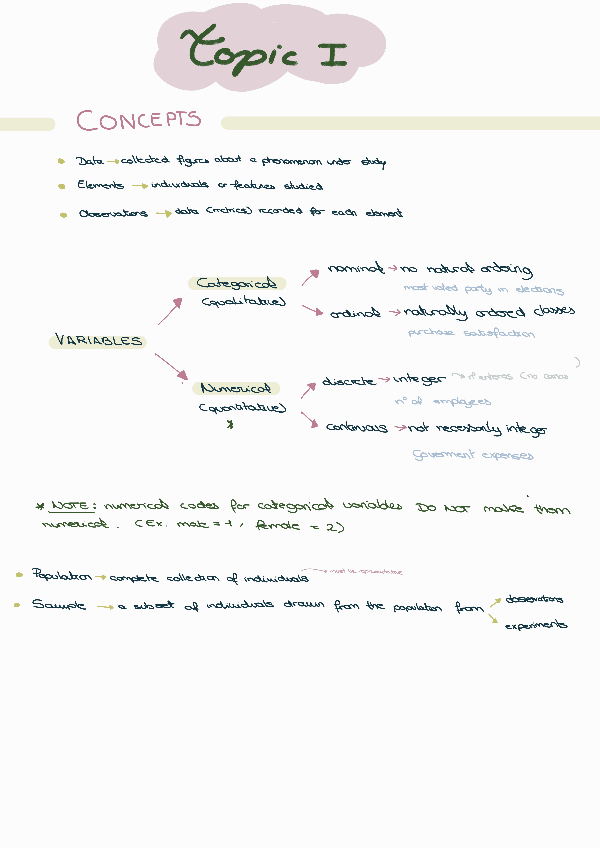 Topic I
CONCEPTS
• Data → collected figures about a phenomenon under study
• Elements → individuals or features studied
• Observations → data (metrics) recorded for each element
VARIABLES
Categorical
(qualitative)
nominal → no natural ordering
most voted party in elections
ordinal → naturally ordered classes
purchase satisfaction
Numerical
(quantitative)
*
discrete → integer → nº enteros (no comas)
nº of employees
continuous → not necessarily integer
Goverment expenses
* NOTE: numerical codes for categorical variables DO NOT make them
numerical. (Ex. male = 1, female = 2)
• Population → complete collection of individuals → must be representative
• Sample → a subset of individuals drawn from the population from
observations
experiments